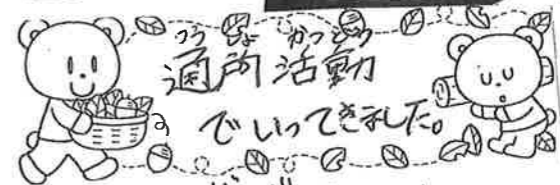 つうしょ かつどう
通所活動
でいってきました。